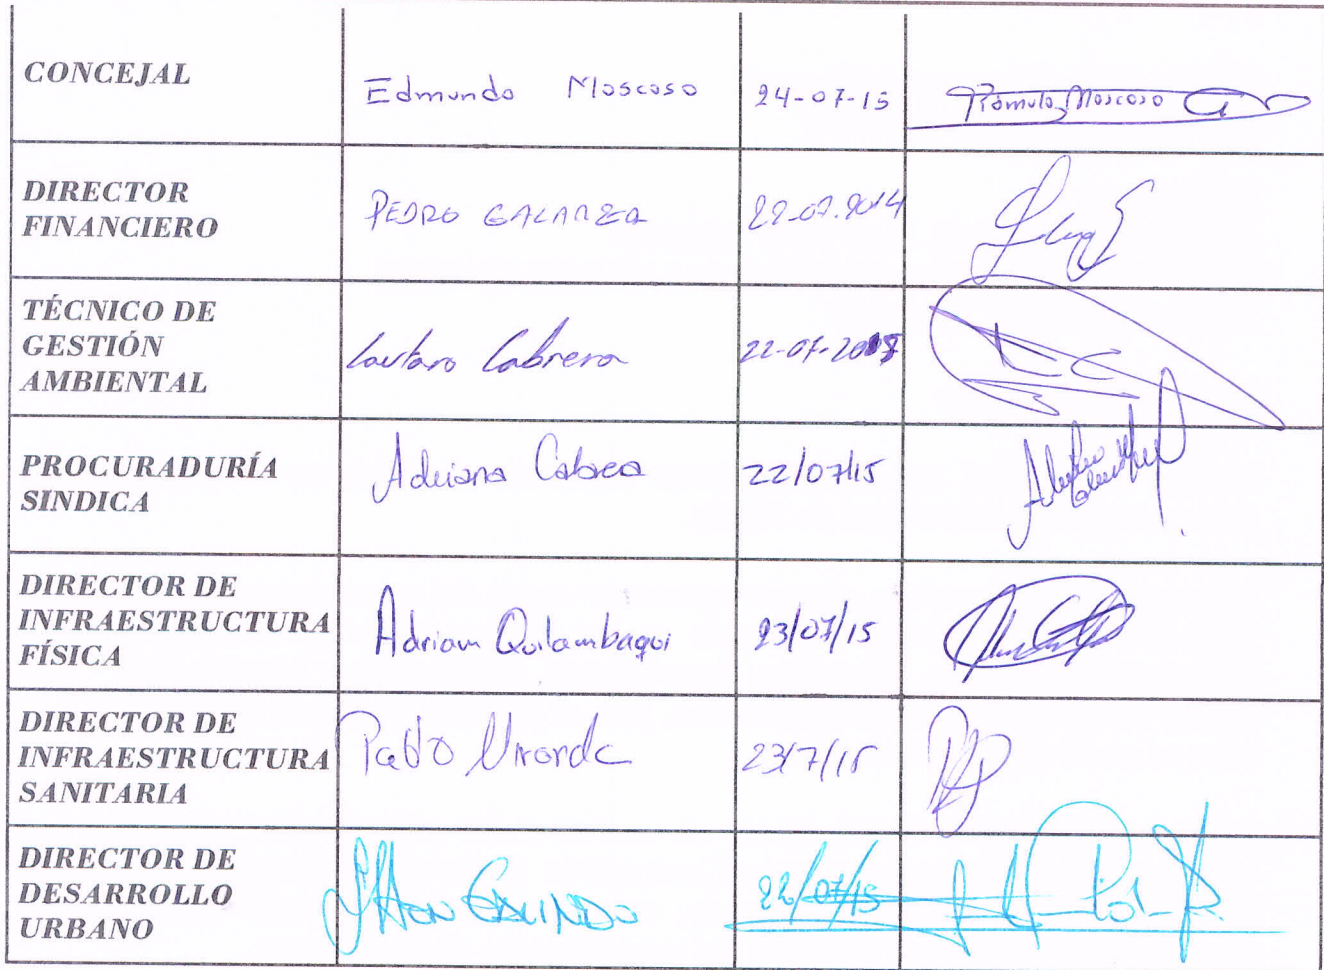 CONCEJAL
Edmundo Moscoso
24-07-15
Rómulo Moscoso
DIRECTOR
FINANCIERO
PEDRO GALARZA
22-07-2014
TÉCNICO DE
GESTIÓN
AMBIENTAL
Lautaro Cabrera
22-07-2015
PROCURADURÍA
SINDICA
Adriana
22/07/15
DIRECTOR DE
INFRAESTRUCTURA
FÍSICA
Adrian Quilambaqui
23/07/15
DIRECTOR DE
INFRAESTRUCTURA
SANITARIA
Pablo
23/7/15
DIRECTOR DE
DESARROLLO
URBANO
GALINDO
22/07/15